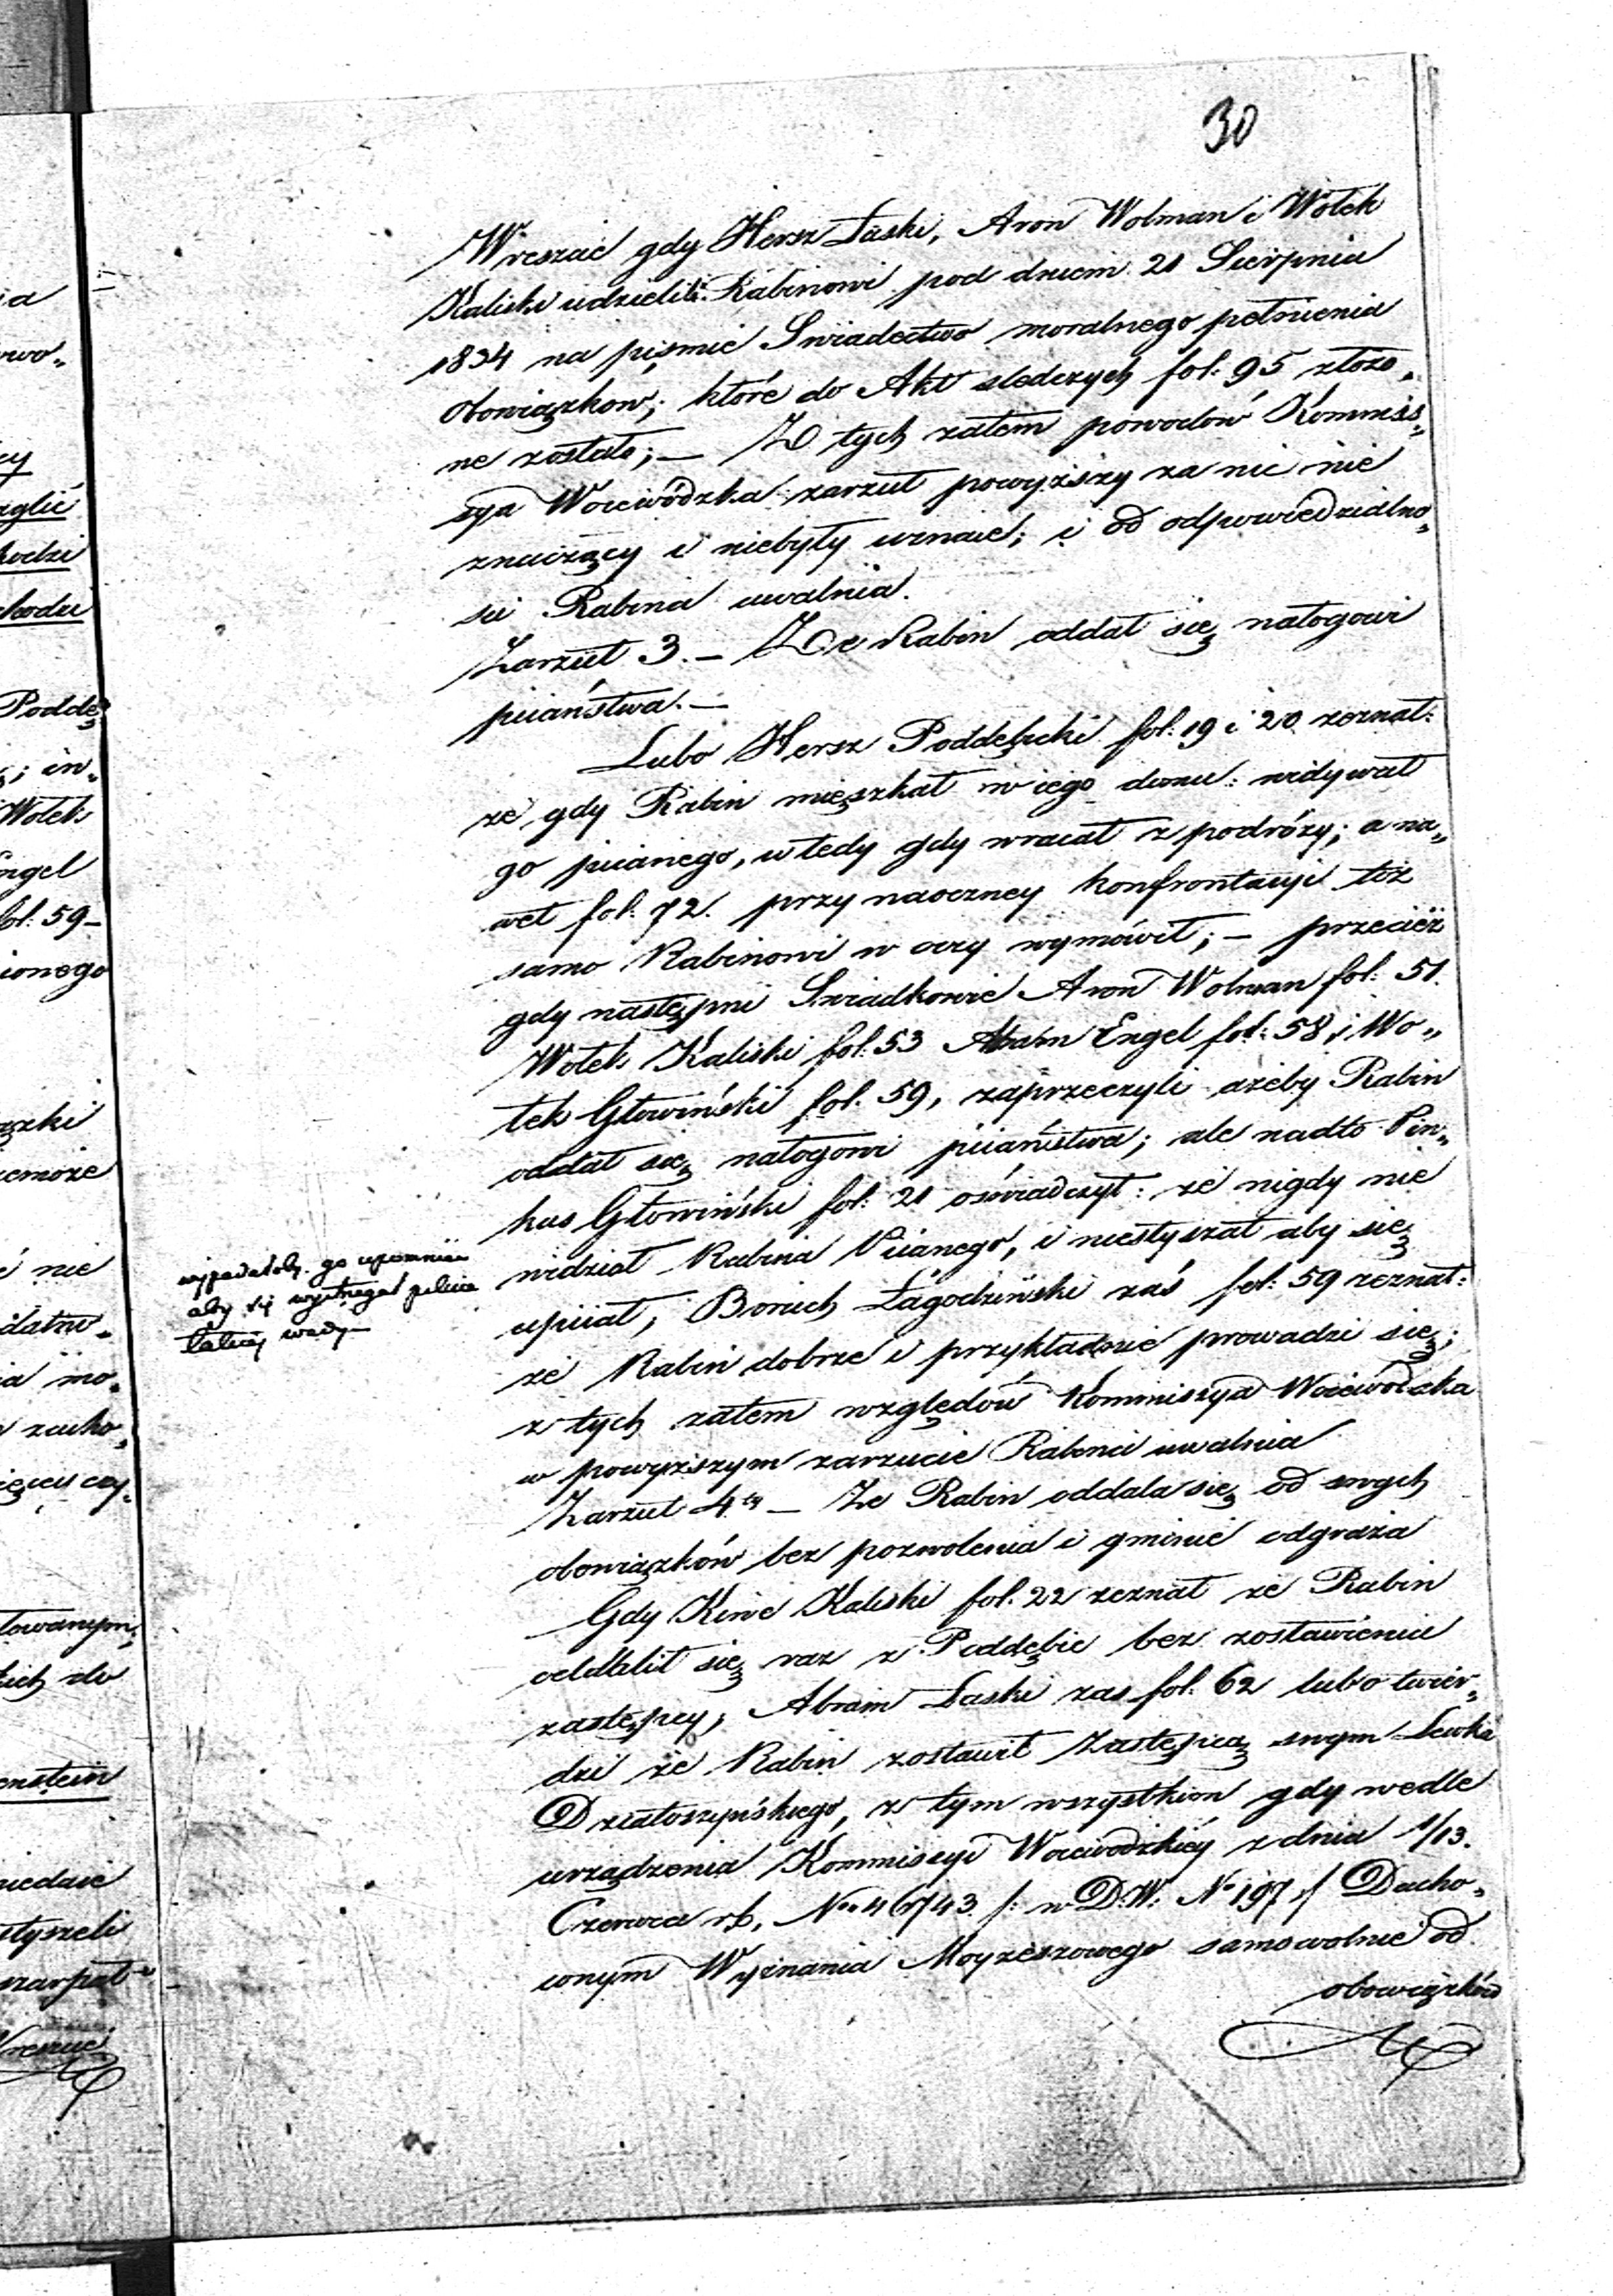 30
Wreszcie gdy Hersz Łaski, Aron Wolman i Wołek
Kaliski udzielili Rabinowi pod dniem 21 Sierpnia
1834 na piśmie Swiadectwo moralnego pełnienia
obowiązkow; które do Akt sledczych fol: 95 złożo„
ne zostało; — Z tych zatem powodów Kommis„
syia Woiewódzka zarzut powyższy za nic nie
znaczący i niebyły uznaie; i od odpowiedzialno„
sci Rabina uwalnia.
Zarzut 3. — Że Rabin oddał się nałogowi
piiaństwa. —
Lubo Hersz Poddębicki fol: 19 i 20 zeznał:
że gdy Rabin mieszkał w iego domu: widywał
go piianego, wtedy gdy wracał z podróży; a na„
wet fol: 72. przy naoczney konfrontacyi toż
samo Rabinowi w oczy wymówił; — przecież
gdy następni Swiadkowie Aron Wolman fol: 51.
Wołek Kaliski fol: 53 Abram Engel fol: 58 i Wo„
łek Głowiński fol. 59, zaprzeczyli ażeby Rabin
oddał się nałogowi piiaństwa; ale nadto Pin„
kus Głowiński fol: 21 oświadczył: że nigdy nie
widział Rabina Piianego, i niesłyszał aby się
upiiał, Boruch Łagodziński zaś fol: 59 zeznał:
że Rabin dobrze i przykładnie prowadzi się;
z tych zatem względów Kommissyia Woiewódzka
w powyższym zarzucie Rabina uwalnia
Zarzut 4ty — Że Rabin oddala się od swych
obowiązków bez pozwolenia i gminie odgraża
Gdy Kiwe Kaliski fol. 22 zeznał że Rabin
oddalił się raz z Poddębic bez zostawienia
zastępcy; Abram Łaski zas fol. 62 lubo twier„
dzi że Rabin zostawił Zastępcą swym Lewka
Działoszyńskiego, z tym wszystkiem gdy wedle
urządzenia Kommissyi Woiewódzkiéy z dnia 1/13.
Czerwca rb, No 46743 /: w D: W: No 197 :/ Ducho„
wnym Wyznania Moyżeszowego samowolnie od
obowiązków
wypadałoby go upomnieć
aby się wystrzegał pilnie
takiéj wady —
ia
cy
Podde
Wołek
Engel
fol: 59 —
ionego
nie
enstein
słyszeli
Wreszcie